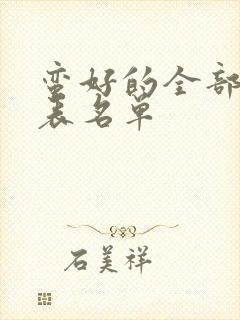 蛮好的全部
表名单
石美祥